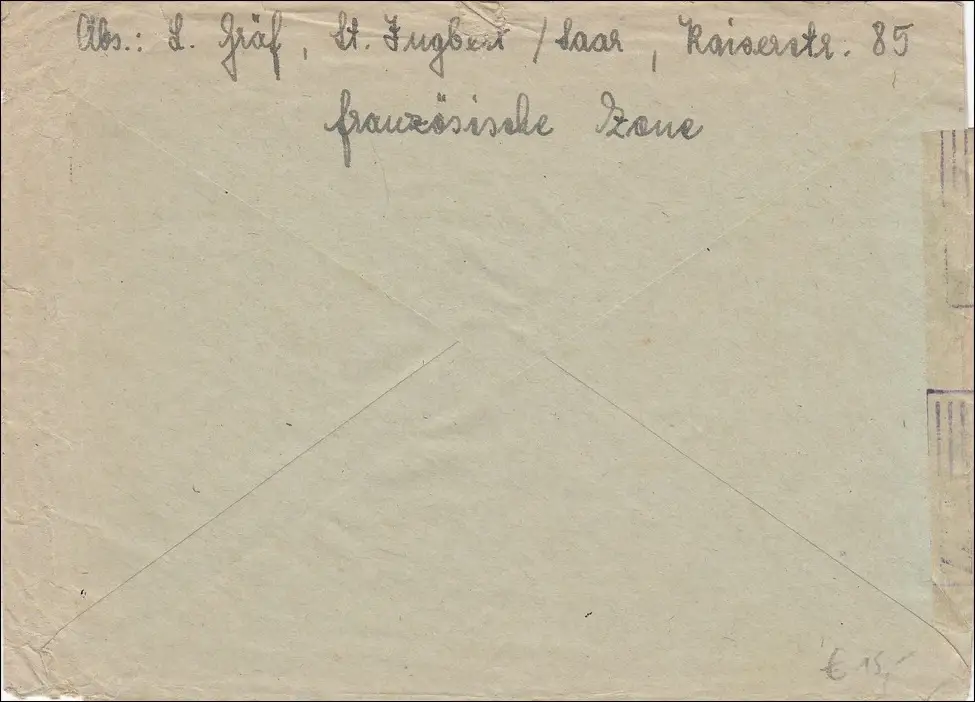 Abs.: L. Gräf, St. Ingbert / Saar, Kaiserstr. 85
französische Zone
€ 15,-